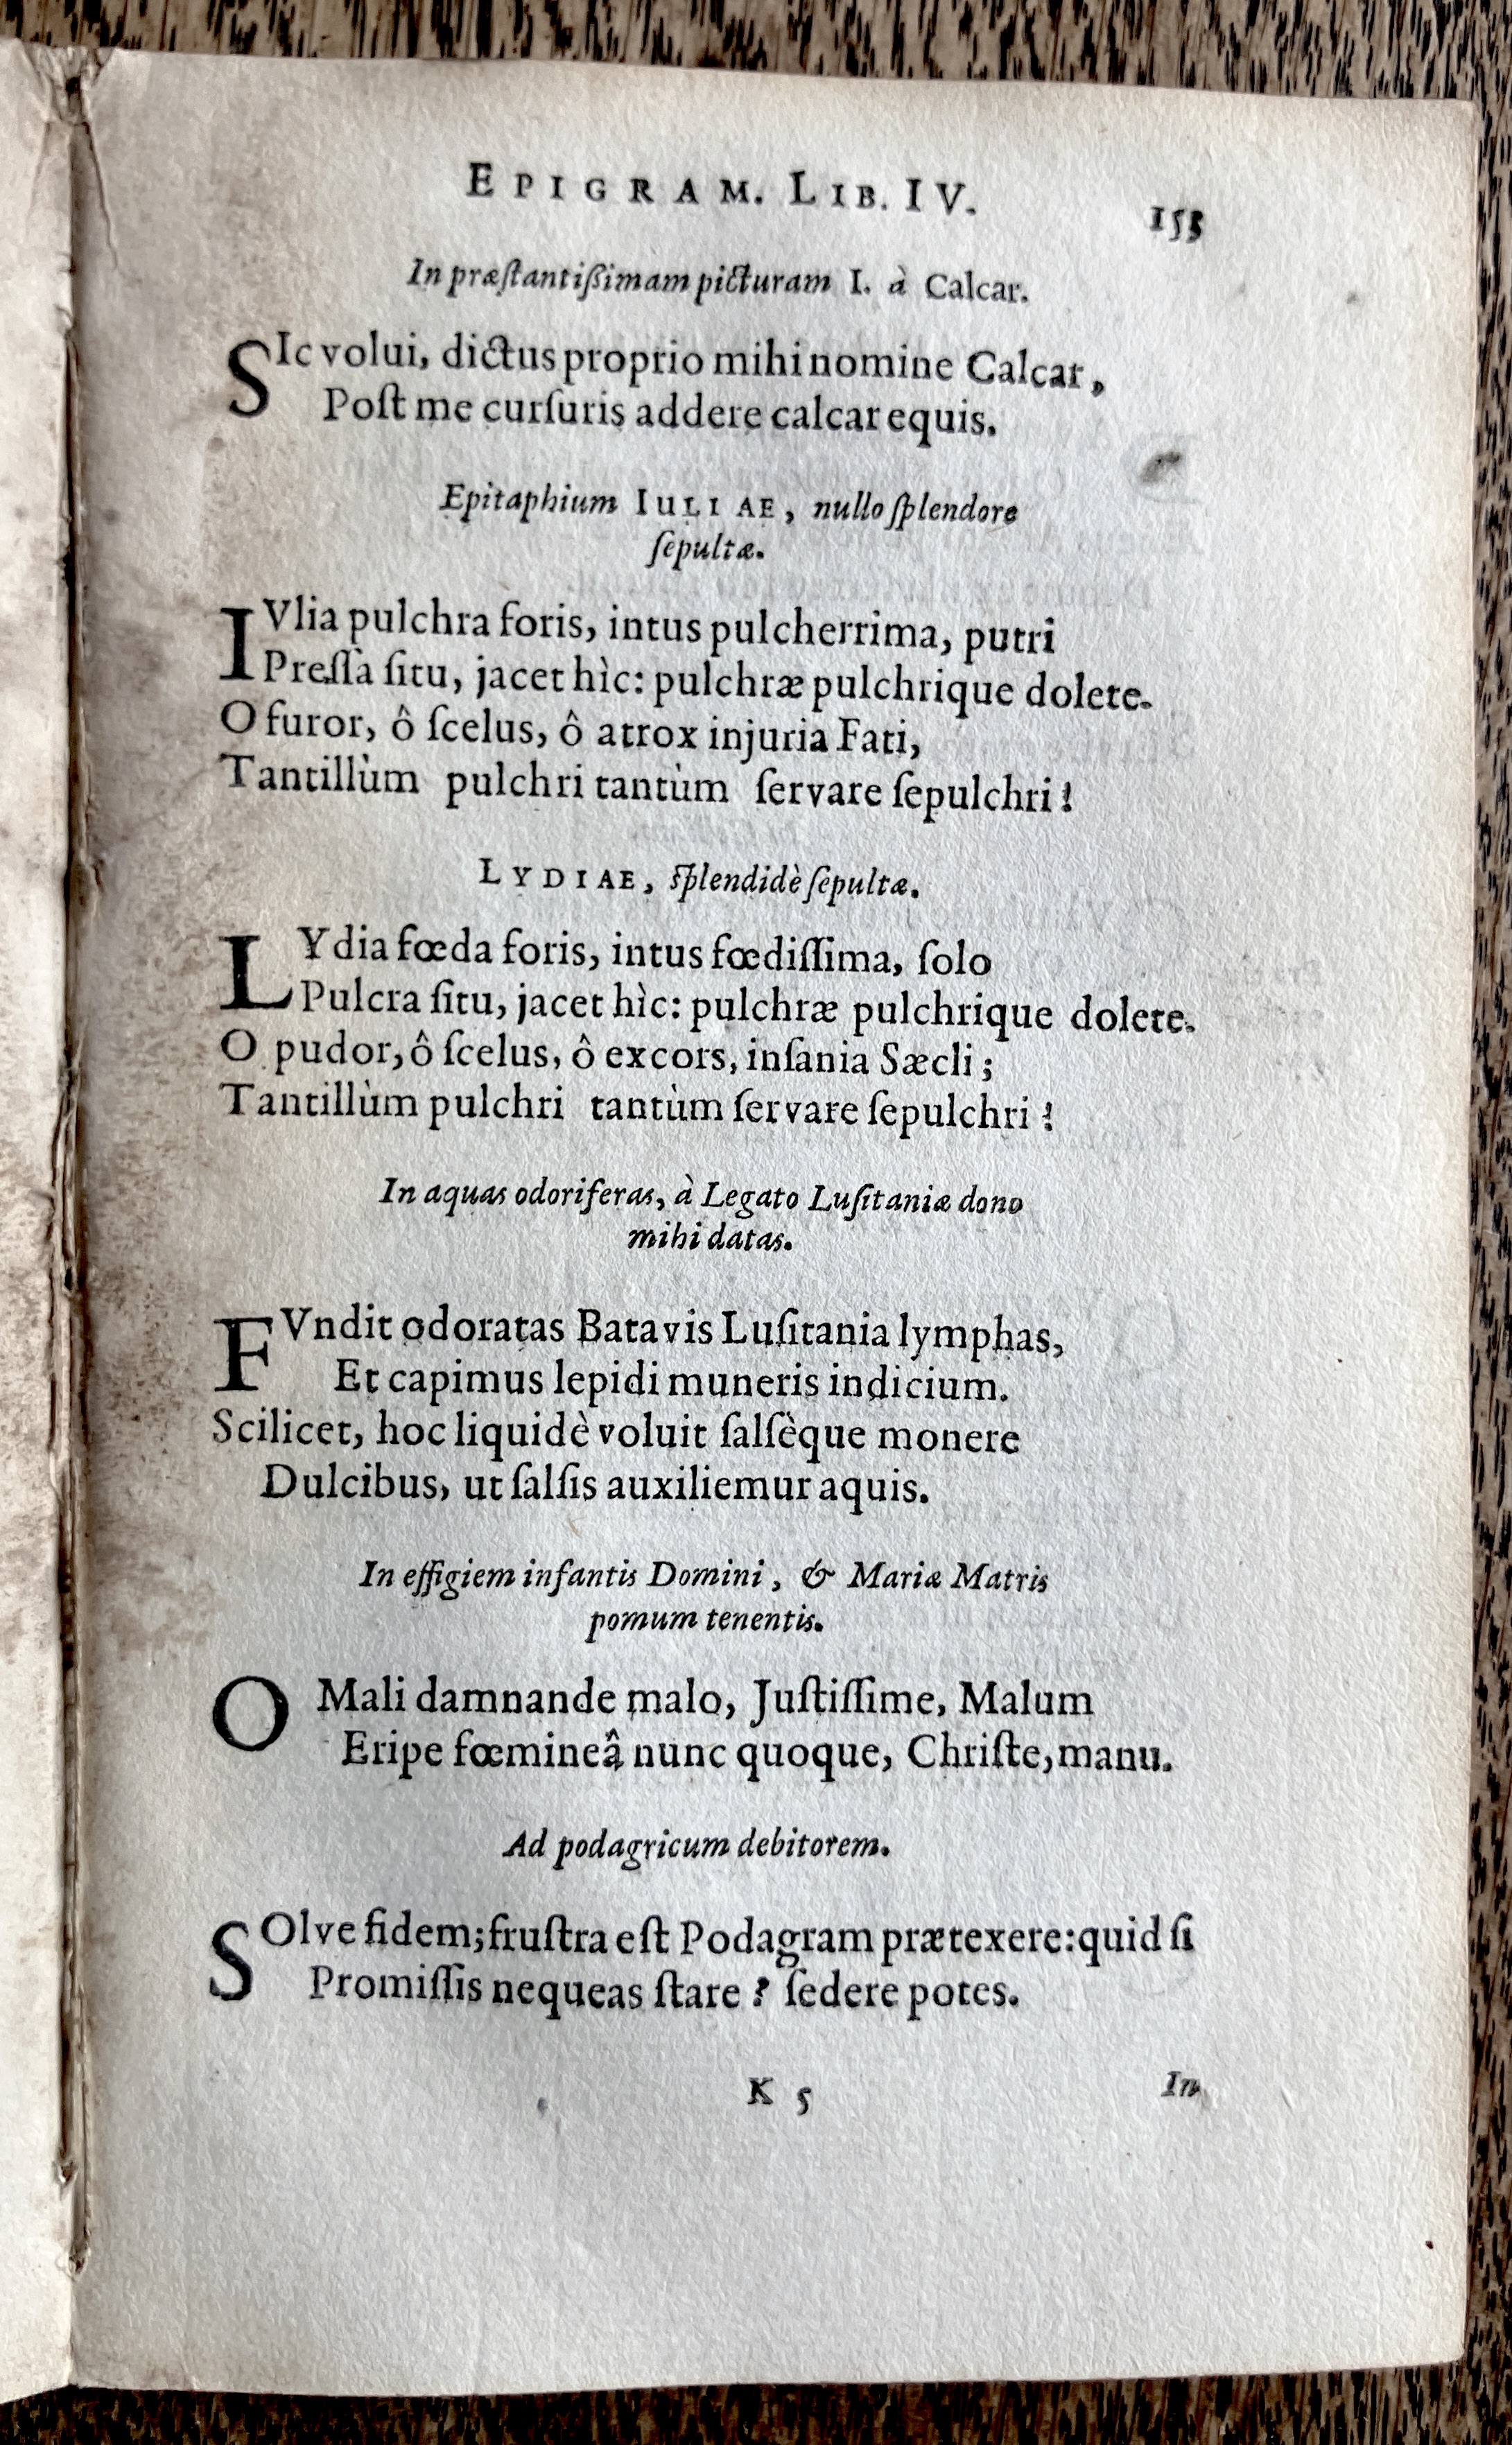 EPIGRAM. LIB. IV.
153
In præſtantiſsimam picturam I. à Calcar.
SIc volui, dictus proprio mihi nomine Calcar,
Poſt me curſuris addere calcar equis.
Epitaphium IULIAE, nullo ſplendore
ſepultæ.
IVlia pulchra foris, intus pulcherrima, putri
Preſſà ſitu, jacet hìc: pulchræ pulchrique dolete.
O furor, ô ſcelus, ô atrox injuria Fati,
Tantillùm pulchri tantùm ſervare ſepulchri!
LYDIAE, ſplendidè ſepultæ.
LYdia fœda foris, intus fœdiſſima, ſolo
Pulcra ſitu, jacet hìc: pulchræ pulchrique dolete.
O pudor, ô ſcelus, ô excors, inſania Sæcli;
Tantillùm pulchri tantùm ſervare ſepulchri!
In aquas odoriferas, à Legato Luſitaniæ dono
mihi datas.
FVndit odoratas Batavis Luſitania lymphas,
Et capimus lepidi muneris indicium.
Scilicet, hoc liquidè voluit ſalſèque monere
Dulcibus, ut ſalſis auxiliemur aquis.
In effigiem infantis Domini, & Mariæ Matris
pomum tenentis.
O Mali damnande malo, Juſtiſſime, Malum
Eripe fœmineâ nunc quoque, Chriſte, manu.
Ad podagricum debitorem.
SOlve fidem; fruſtra eſt Podagram prætexere: quid ſi
Promiſſis nequeas ſtare? ſedere potes.
K 5
In